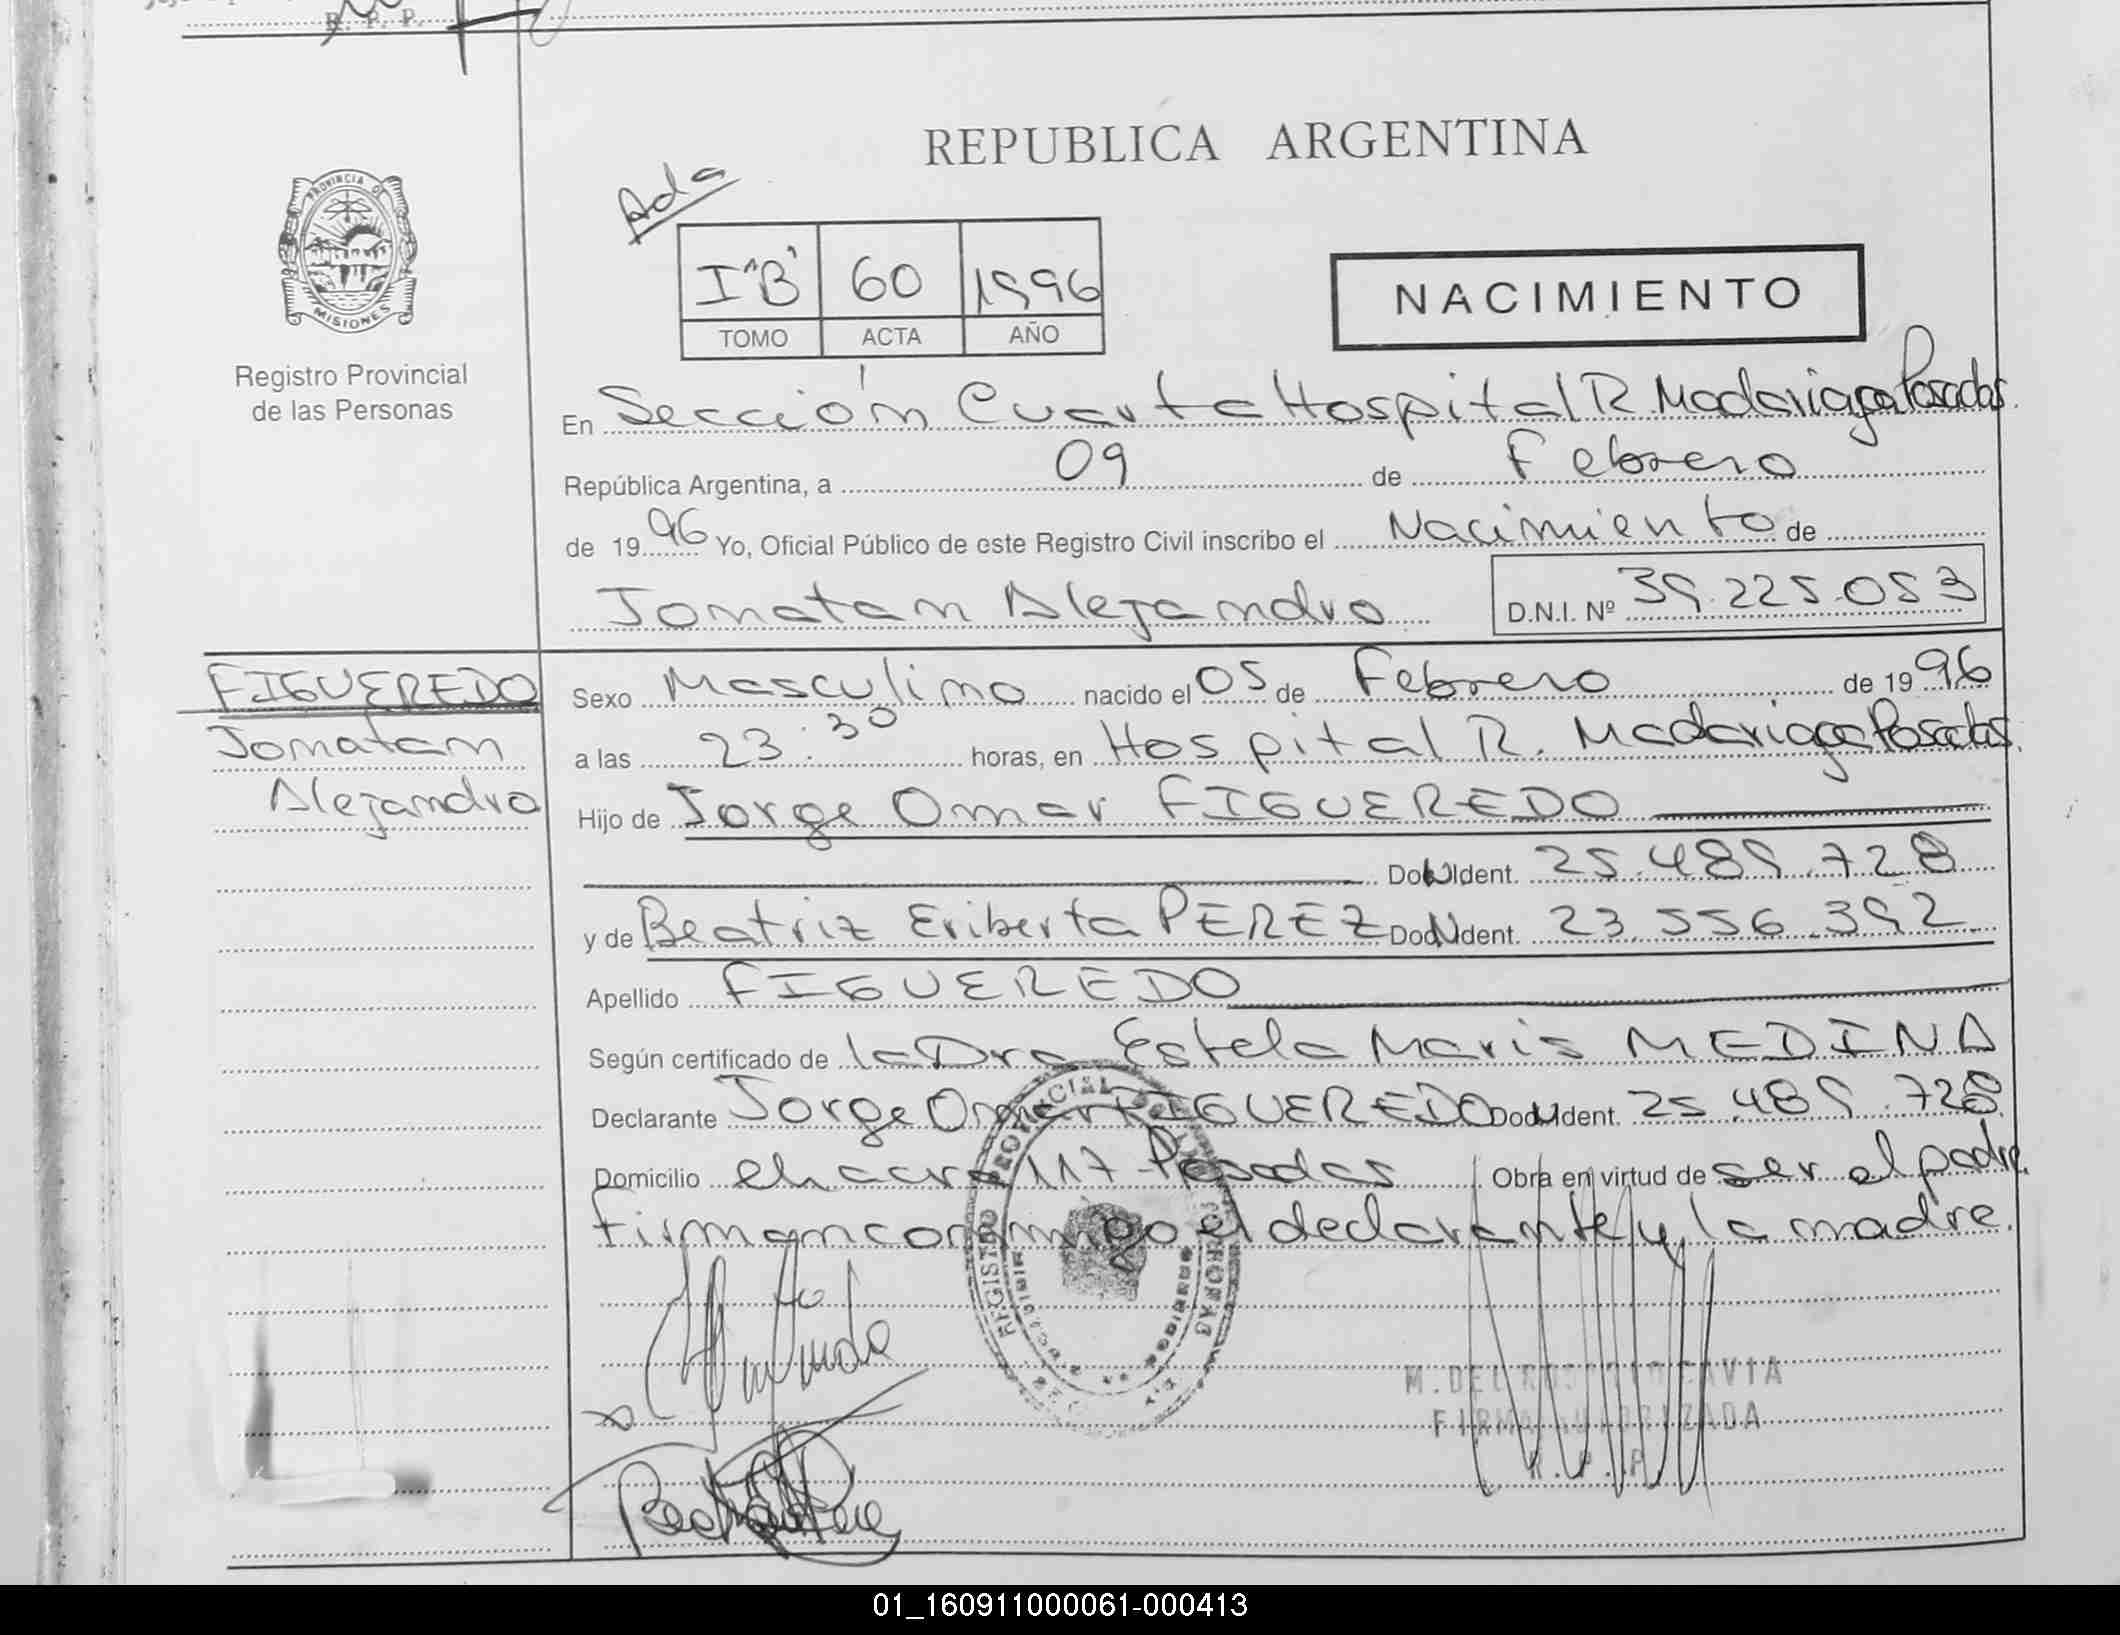 R. P. P.
REPUBLICA ARGENTINA
Ada
PROVINCIA DE
MISIONES
I "B" 60 1996
TOMO ACTA AÑO
NACIMIENTO
Registro Provincial
de las Personas
En Sección Cuarta Hospital R Madariaga Posadas
República Argentina, a 09 de Febrero
de 1996 Yo, Oficial Público de este Registro Civil inscribo el Nacimiento de
Jonatan Alejandro D.N.I. Nº 39.225.053
FIGUEREDO
Jonatan
Alejandro
Sexo Masculino nacido el 05 de Febrero de 1996
a las 23:30 horas, en Hospital R. Madariaga Posadas
Hijo de Jorge Omar FIGUEREDO
Doc. Ident. 25.489.728
y de Beatriz Eriberta PEREZ Doc. Ident. 23.556.392
Apellido FIGUEREDO
Según certificado de la Dra Estela Maris MEDINA
Declarante Jorge Omar FIGUEREDO Doc. Ident. 25.489.728
Domicilio chacra 117 - Posadas Obra en virtud de ser el padre.
Firman conmigo el declarante y la madre.
REGISTRO PROVINCIAL DE LAS PERSONAS
M. DEL ROSARIO GAVIA
FIRMA AUTORIZADA
R. P. P.
01_160911000061-000413